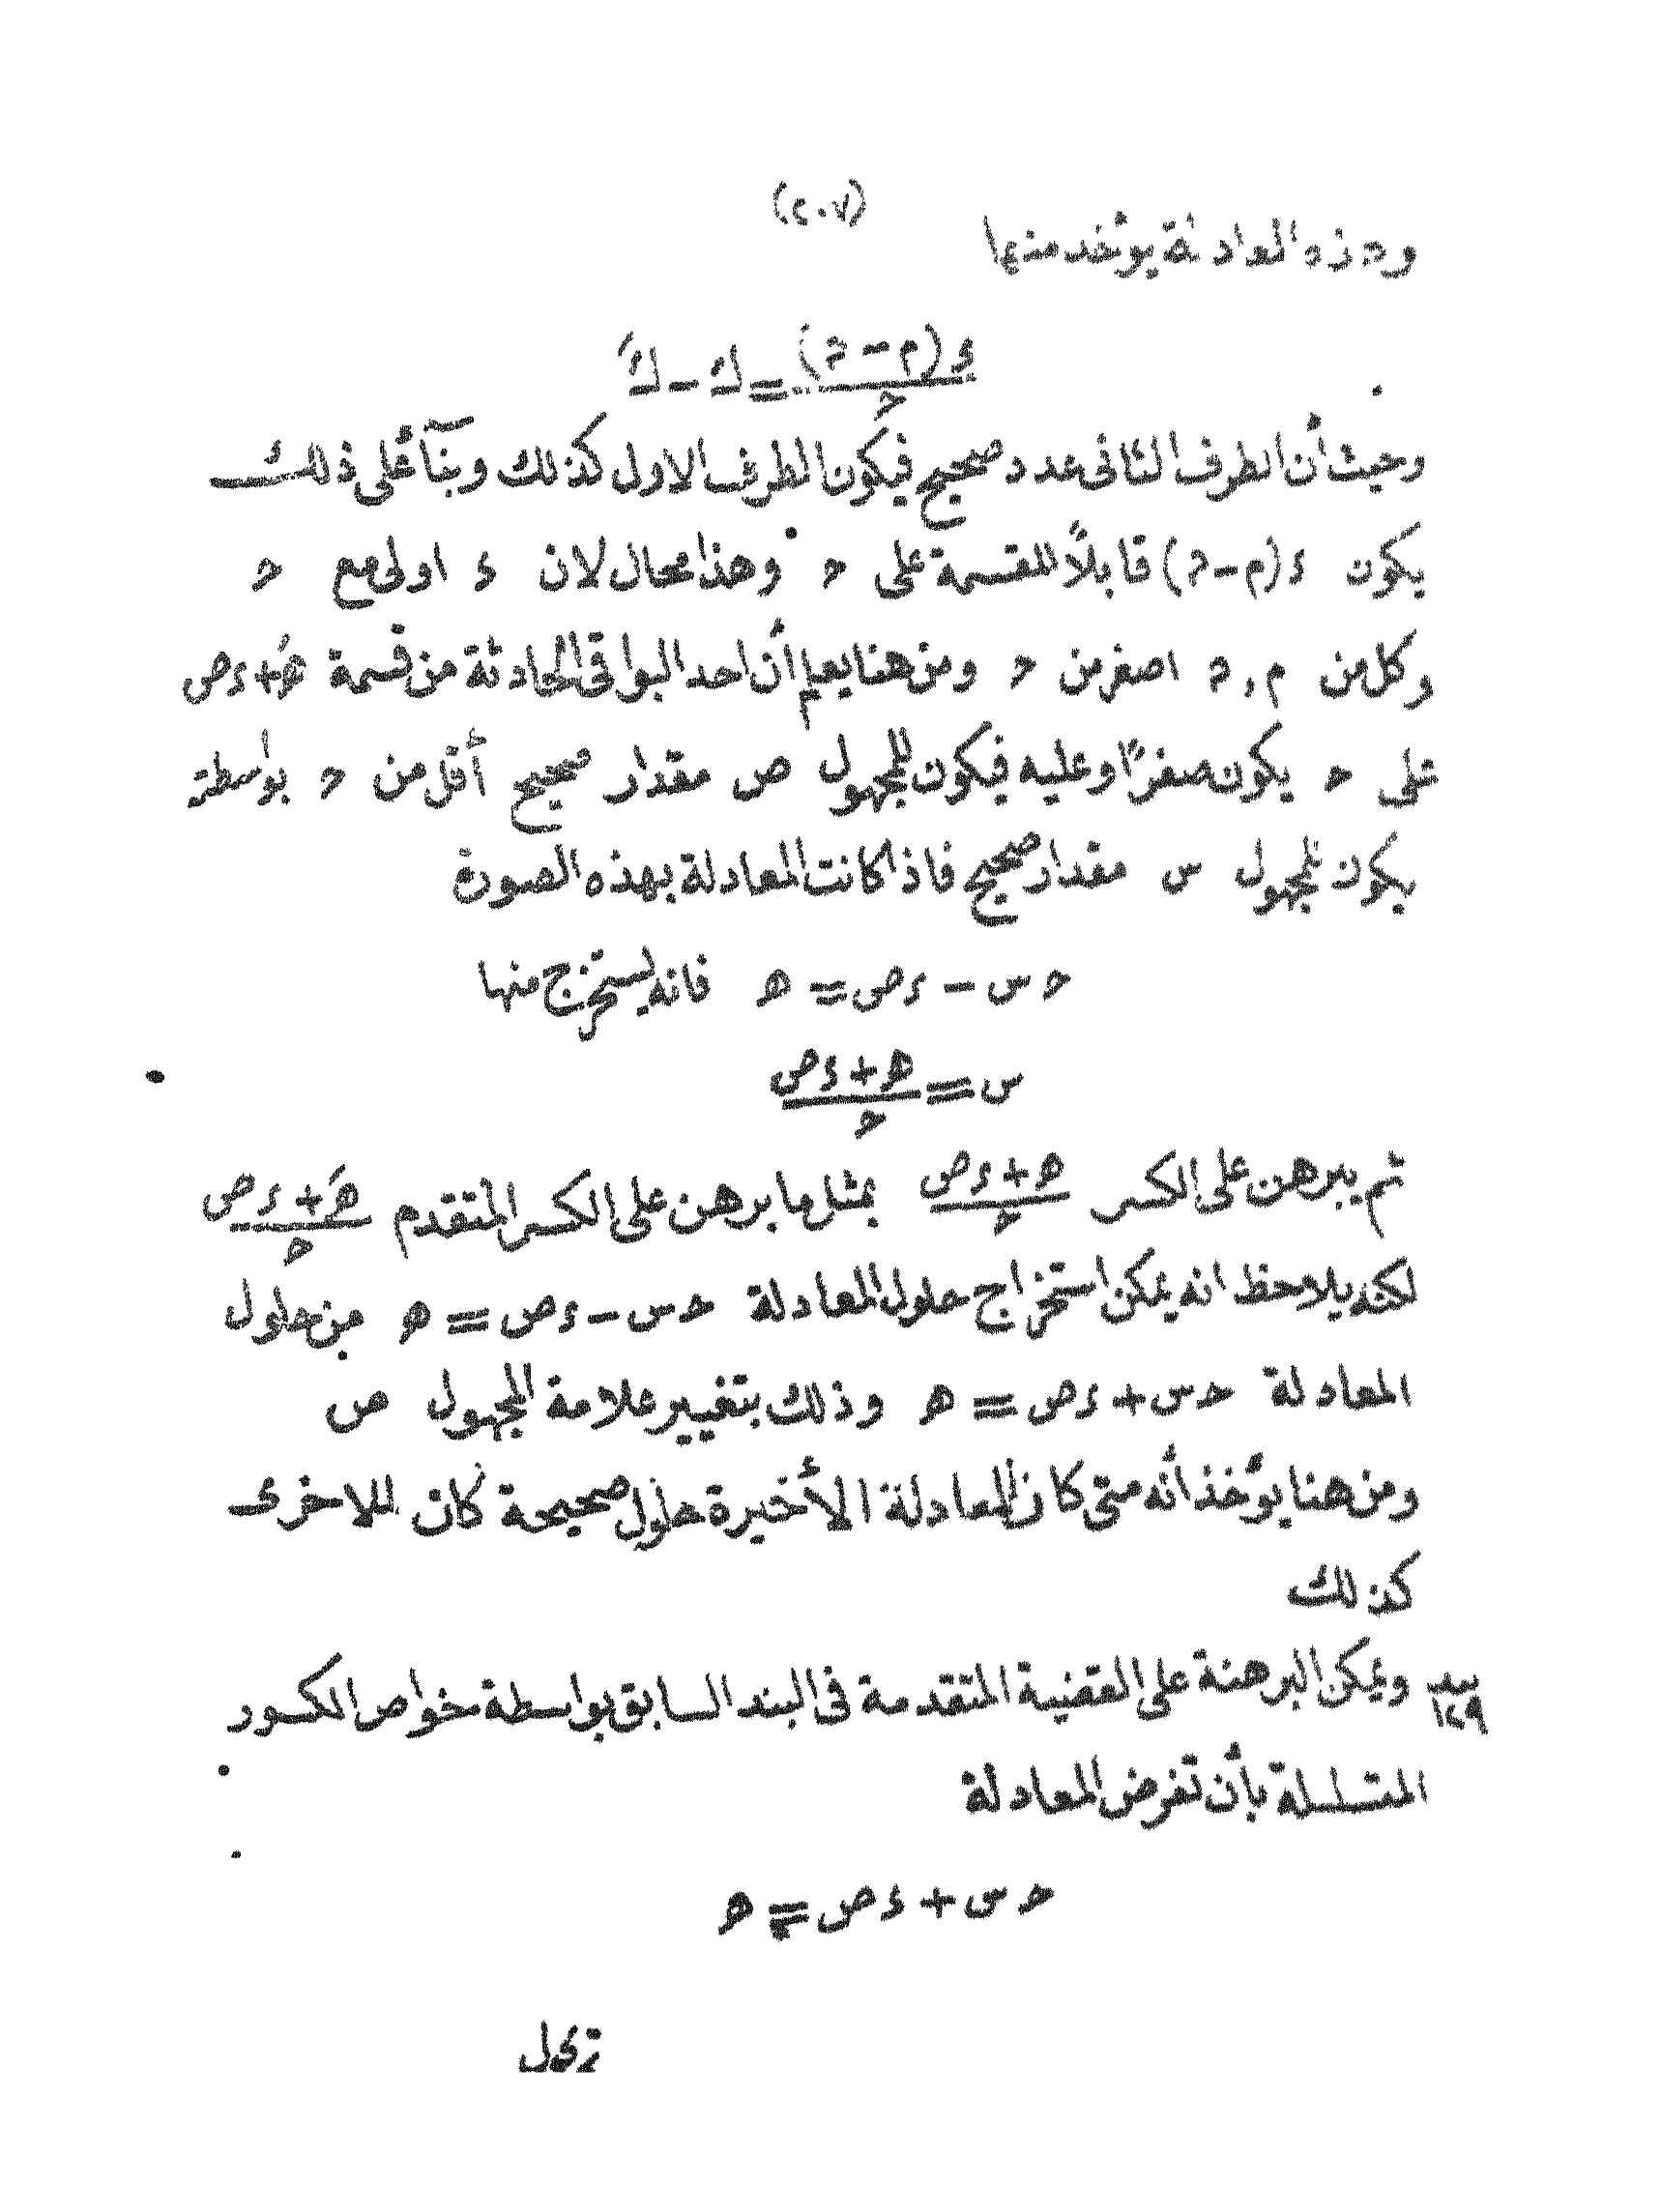 (٢٠٧)
وهذه المعادلة يؤخذ منها
ء(م-ه)/ح = ك - كَ
وحيث أن الطرف الثانى عدد صحيح فيكون الطرف الاول كذلك وبنآءً على ذلك
يكون ء(م-ه) قابلاً للقسمة على ح وهذا محال لان ء اولى مع ح
وكل من م , ه اصغر من ح ومن هنا يعلم أن احد البواقى الحادثة من قسمة هَ+ءص
على ح يكون صفرًا وعليه فيكون للمجهول ص مقدار صحيح أقل من ح بواسطته
يكون للمجهول س مقدار صحيح فاذا كانت المعادلة بهذه الصورة
ح س - ءص = ه فانه يستخرج منها
س = ه+ءص/ح
ثم يبرهن على الكسر ه+ءص/ح بمثل ما برهن على الكسر المتقدم هَ+ءص/ح
لكنه يلاحظ انه يمكن استخراج حلول المعادلة ح س - ءص = ه من حلول
المعادلة ح س + ءص = ه وذلك بتغيير علامة المجهول ص
ومن هنا يؤخذ أنه متى كان للمعادلة الأخيرة حلول صحيحة كان للاخرى
كذلك
بند ١٢٩ ويمكن البرهنة على القضية المتقدمة فى البند السابق بواسطة خواص الكسور
المتسلسلة بأن تفرض المعادلة
ح س + ءص = ه